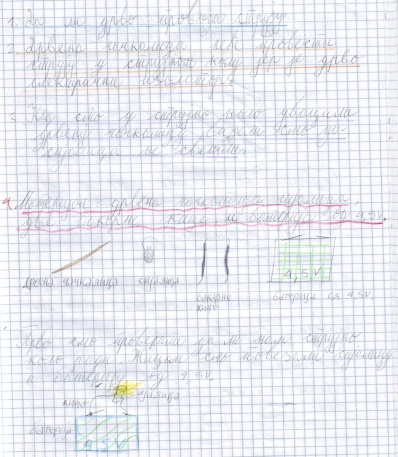 1. Да ли дрво проводи струју
2. Дрвена чачкалица неће провести
струју у струјном колу јер је дрво
електрични изолатор.
3. Кад смо у струјно коло убацили
дрвену чачкалицу смо
сијалица не светли.
4. Материјал: дрвена чачкалица, сијалица,
две бакарне жице и батерија од 4,5V.
Дрвена чачкалица
сијалица
бакарне
жице
4,5V
батерија од 4,5V.
Прво смо проверили да ли нам струјно
коло ради. Жицом смо повезали сијалицу
и батерију од 4,5V.
сијалица
жица
батерија
4,5V